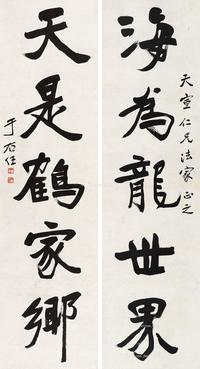 天室仁兄法家正之
海為龍世界
天是鶴家鄉
于右任